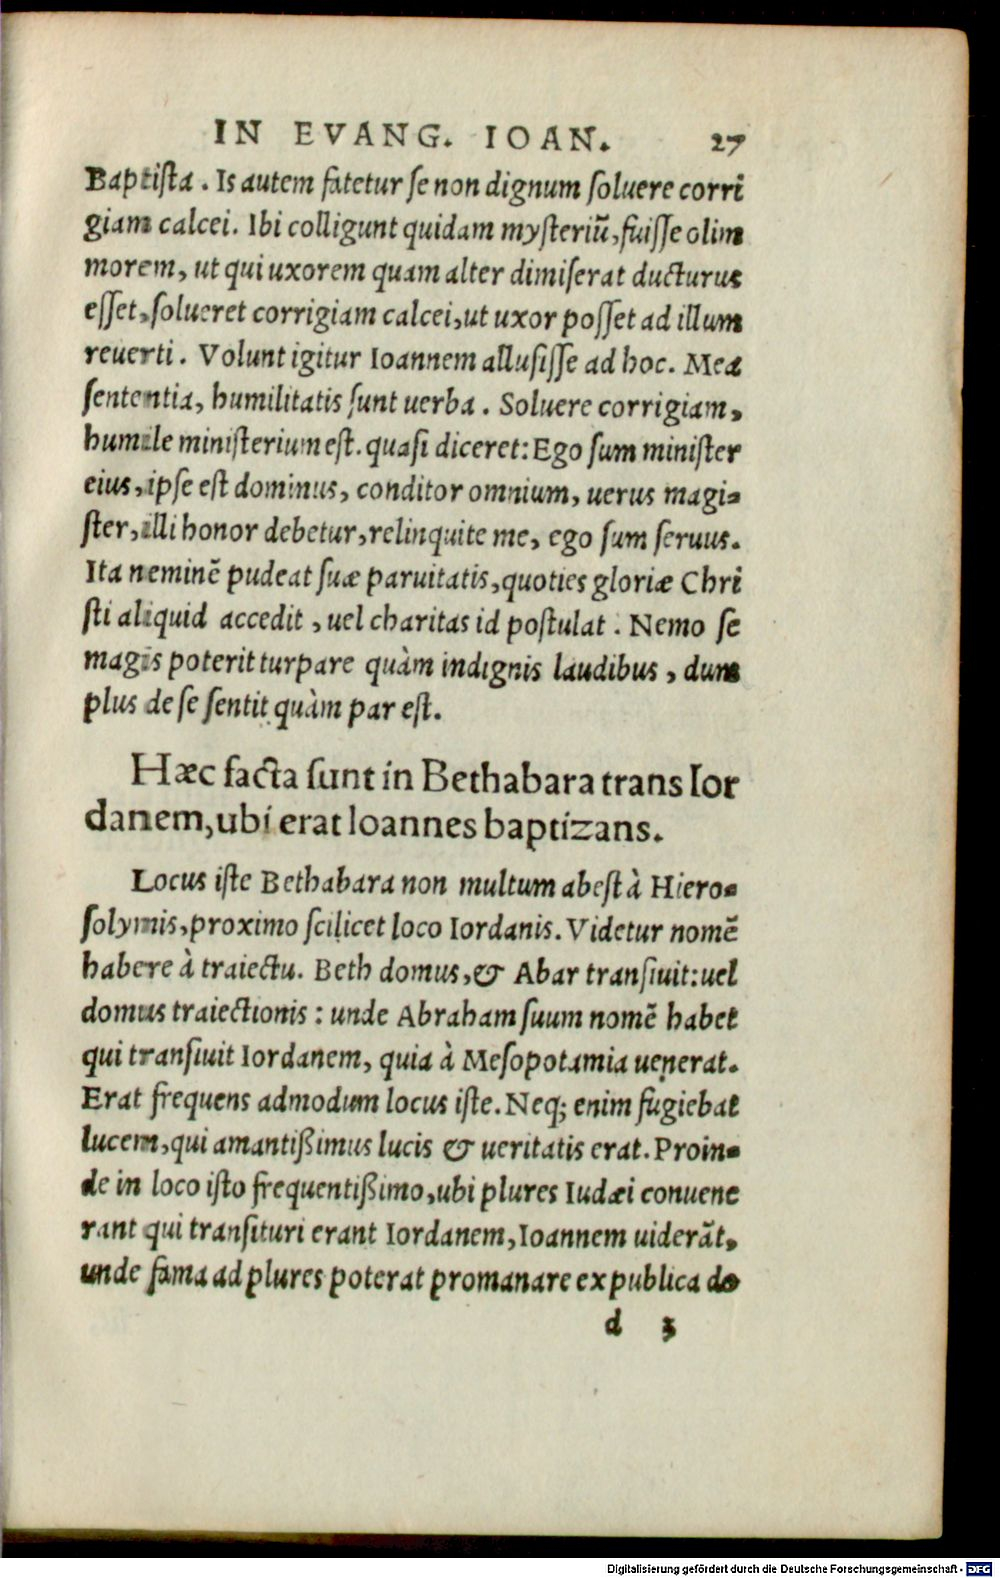 IN EVANG. IOAN. 27
Baptista. Is autem fatetur se non dignum soluere corri
giam calcei. Ibi colligunt quidam mysteriū, fuisse olim
morem, ut qui uxorem quam alter dimiserat ducturus
esset, solueret corrigiam calcei, ut uxor posset ad illum
reuerti. Volunt igitur Ioannem allusisse ad hoc. Mea
sententia, humilitatis sunt uerba. Soluere corrigiam,
humile ministerium est. quasi diceret: Ego sum minister
eius, ipse est dominus, conditor omnium, uerus magi-
ster, illi honor debetur, relinquite me, ego sum seruus.
Ita neminē pudeat suæ paruitatis, quoties gloriæ Chri
sti aliquid accedit, uel charitas id postulat. Nemo se
magis poterit turpare quàm indignis laudibus, dum
plus de se sentit quàm par est.
Hæc facta sunt in Bethabara trans Ior
danem, ubi erat Ioannes baptizans.
Locus iste Bethabara non multum abest à Hiero-
solymis, proximo scilicet loco Iordanis. Videtur nomē
habere à traiectu. Beth domus, & Abar transiuit: uel
domus traiectionis: unde Abraham suum nomē habet
qui transiuit Iordanem, quia à Mesopotamia uenerat.
Erat frequens admodum locus iste. Neq; enim fugiebat
lucem, qui amantißimus lucis & ueritatis erat. Proin-
de in loco isto frequentißimo, ubi plures Iudæi conuene
rant qui transituri erant Iordanem, Ioannem uiderāt,
unde fama ad plures poterat promanare ex publica do
d 3
Digitalisierung gefördert durch die Deutsche Forschungsgemeinschaft - DFG